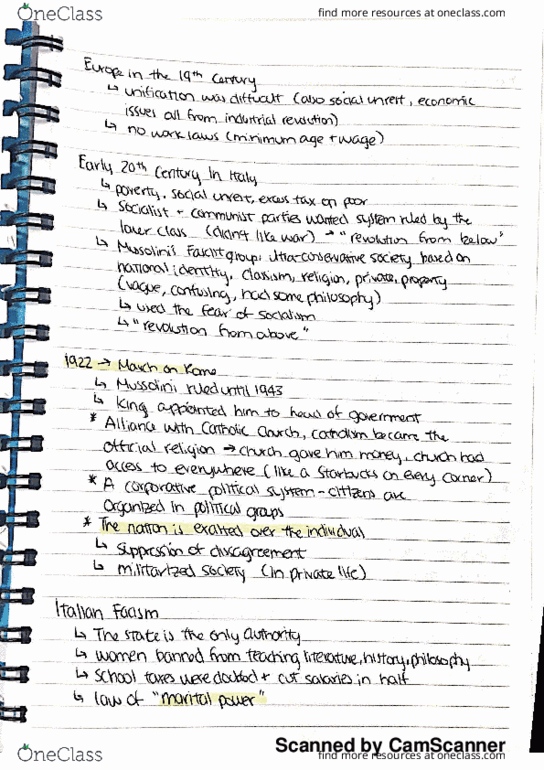 OneClass
find more resources at oneclass.com
Europe in the 19th Century
↳ unification was difficult (also social unrest, economic
issues all from industrial revolution)
↳ no work laws (minimum age + wage)
Early 20th Century In Italy
↳ poverty, social unrest, exces tax on poor
↳ Socialist + communist parties wanted system ruled by the
lower class (didn't like war) → "revolution from below"
↳ Mussolini's Fascist group, ultra-conservative society based on
national identity, classism, religion, private, property
(vague, confusing, had some philosophy)
↳ used the fear of socialism
↳ "revolution from above"
1922 → March on Rome
↳ Mussolini ruled until 1943
↳ King appointed him to head of government
* Alliance with Catholic Church, catholism became the
official religion → church gave him money, church had
access to everywhere (like a Starbucks on every corner)
* A corporative political system - citizens are
organized in political groups
* The nation is exalted over the individual
↳ suppression of disagreement
↳ militarized society (in private life)
Italian Facism
↳ The state is the only authority
↳ women banned from teaching literature, history, philosophy
↳ school taxes were doubled + cut salaries in half
↳ law of "marital power"
Scanned by CamScanner
OneClass
find more resources at oneclass.com